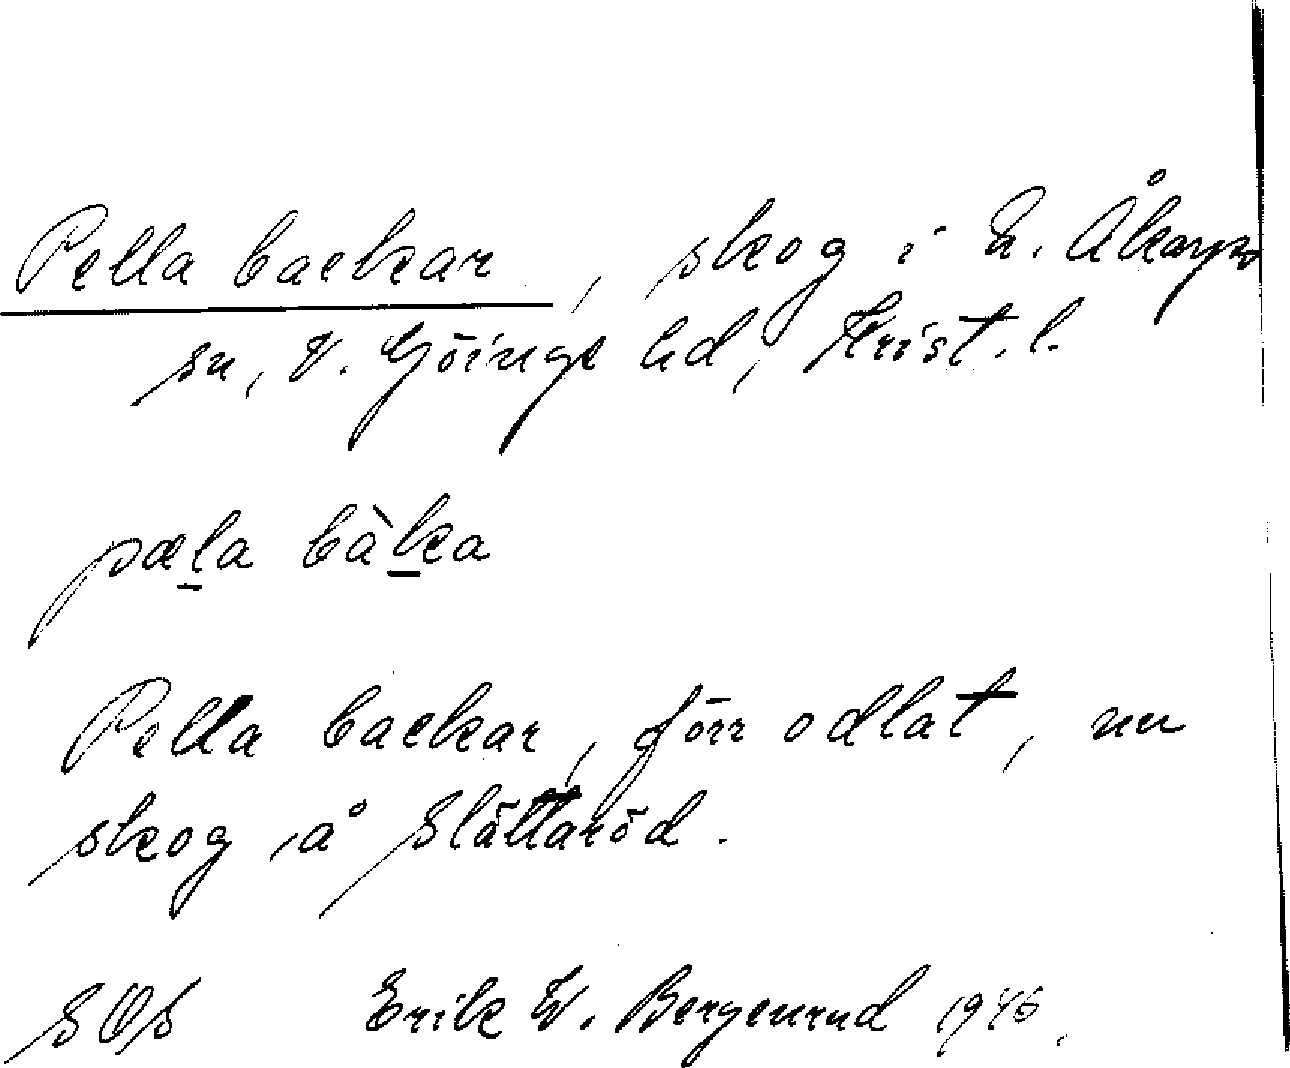 Pella backar, skog i N. Åkarps
sn, V. Göinge hd, Krist. l.
pæl̲a bàk̲a
Pella backar, förr odlat, nu
skog, å Slättaröd.
SOS Erik W. Bergenrud 1946.